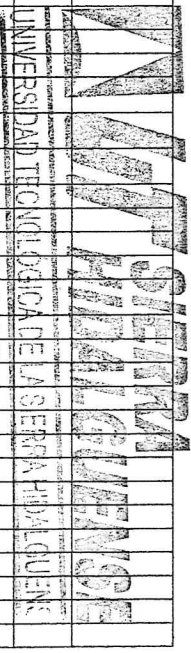 UT SIERRA
HIDALGUENSE
UNIVERSIDAD TECNOLÓGICA DE LA SIERRA HIDALGUENS